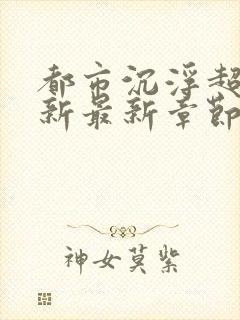 都市沉浮超
新最新章節
神女莫紫